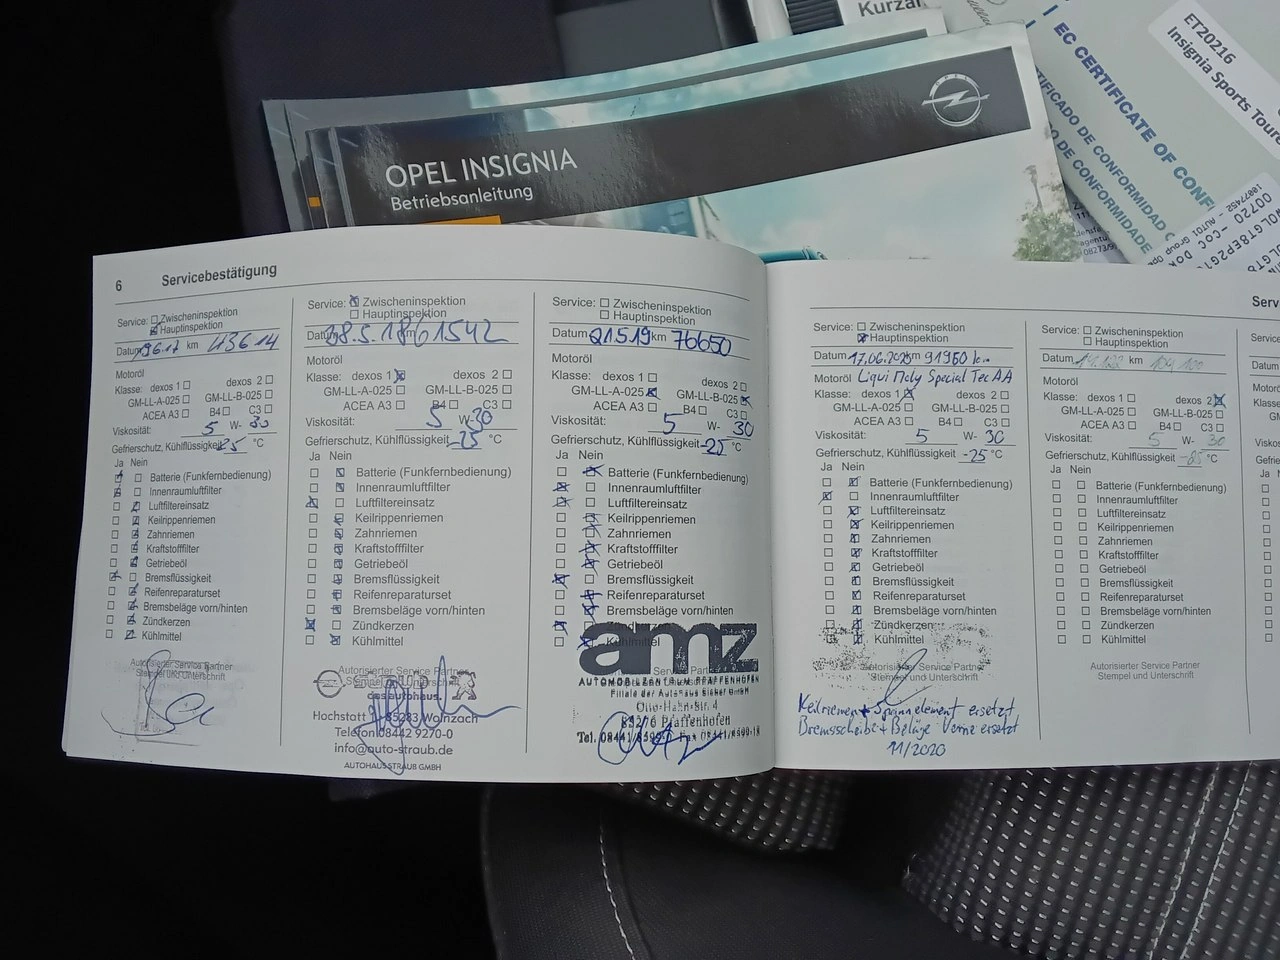 Kurzan
OPEL
OPEL INSIGNIA
Betriebsanleitung
EC CERTIFICATE OF CONF
TIFICADO DE CONFORMIDAD
DO DE CONFORMIDADE
ET20216
Insignia Sports Toure
00720 - COC
6 Servicebestätigung
Service: Zwischeninspektion
Hauptinspektion
Datum km 43614
Motoröl
Klasse: dexos 1 dexos 2
GM-LL-A-025 GM-LL-B-025
ACEA A3 B4 C3
Viskosität: 5 W- 30
Gefrierschutz, Kühlflüssigkeit -25 °C
Ja Nein
Batterie (Funkfernbedienung)
Innenraumluftfilter
Luftfiltereinsatz
Keilrippenriemen
Zahnriemen
Kraftstofffilter
Getriebeöl
Bremsflüssigkeit
Reifenreparaturset
Bremsbeläge vorn/hinten
Zündkerzen
Kühlmittel
Autorisierter Service Partner
Stempel und Unterschrift
Service: Zwischeninspektion
Hauptinspektion
Datum 28.5.18 km 61542
Motoröl
Klasse: dexos 1 dexos 2
GM-LL-A-025 GM-LL-B-025
ACEA A3 B4 C3
Viskosität: 5 W- 30
Gefrierschutz, Kühlflüssigkeit -25 °C
Ja Nein
Batterie (Funkfernbedienung)
Innenraumluftfilter
Luftfiltereinsatz
Keilrippenriemen
Zahnriemen
Kraftstofffilter
Getriebeöl
Bremsflüssigkeit
Reifenreparaturset
Bremsbeläge vorn/hinten
Zündkerzen
Kühlmittel
Autorisierter Service Partner
Stempel und Unterschrift
das autohaus.
Hochstatt 85283 Wolnzach
Telefon 08442 9270-0
info@auto-straub.de
AUTOHAUS STRAUB GMBH
Service: Zwischeninspektion
Hauptinspektion
Datum 21.5.19 km 76650
Motoröl
Klasse: dexos 1 dexos 2
GM-LL-A-025 GM-LL-B-025
ACEA A3 B4 C3
Viskosität: 5 W- 30
Gefrierschutz, Kühlflüssigkeit -25 °C
Ja Nein
Batterie (Funkfernbedienung)
Innenraumluftfilter
Luftfiltereinsatz
Keilrippenriemen
Zahnriemen
Kraftstofffilter
Getriebeöl
Bremsflüssigkeit
Reifenreparaturset
Bremsbeläge vorn/hinten
Zündkerzen
Kühlmittel
amz
AUTOMOBILZENTRUM PFAFFENHOFEN
Filiale der Autohaus Sieber GmbH
Otto-Hahn-Str. 4
85276 Pfaffenhofen
Serv
Service: Zwischeninspektion
Hauptinspektion
Datum 17.06.2020 km 91950 km
Motoröl Liqui Moly Special Tec AA
Klasse: dexos 1 dexos 2
GM-LL-A-025 GM-LL-B-025
ACEA A3 B4 C3
Viskosität: 5 W- 30
Gefrierschutz, Kühlflüssigkeit -25 °C
Ja Nein
Batterie (Funkfernbedienung)
Innenraumluftfilter
Luftfiltereinsatz
Keilrippenriemen
Zahnriemen
Kraftstofffilter
Getriebeöl
Bremsflüssigkeit
Reifenreparaturset
Bremsbeläge vorn/hinten
Zündkerzen
Kühlmittel
Autorisierter Service Partner
Stempel und Unterschrift
Keilriemen + Spannelement ersetzt
Bremsscheibe + Beläge Vorne ersetzt
11/2020
Service: Zwischeninspektion
Hauptinspektion
Datum km
Motoröl
Klasse: dexos 1 dexos 2
GM-LL-A-025 GM-LL-B-025
ACEA A3 B4 C3
Viskosität: 5 W- 30
Gefrierschutz, Kühlflüssigkeit -25 °C
Ja Nein
Batterie (Funkfernbedienung)
Innenraumluftfilter
Luftfiltereinsatz
Keilrippenriemen
Zahnriemen
Kraftstofffilter
Getriebeöl
Bremsflüssigkeit
Reifenreparaturset
Bremsbeläge vorn/hinten
Zündkerzen
Kühlmittel
Autorisierter Service Partner
Stempel und Unterschrift
Service
Datum
Motoröl
Klasse:
GM-
Viskosität:
Gefriersch
Ja Nein